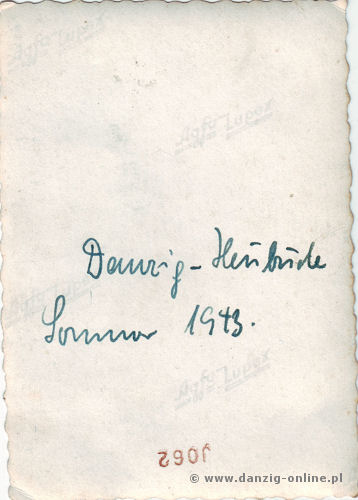 Agfa Lupex
Agfa Lupex
Danzig-Heubude
Sommer 1943.
Agfa Lupex
J062
© www.danzig-online.pl